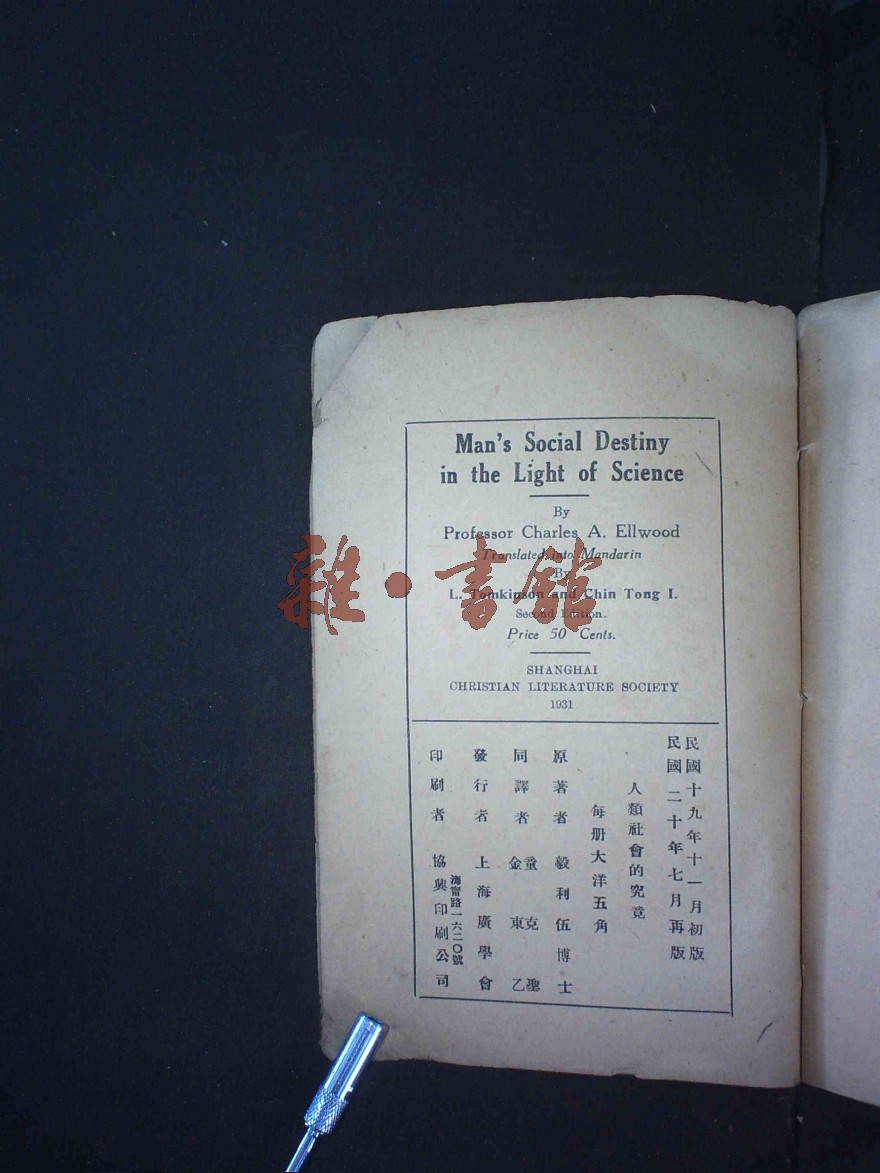 Man's Social Destiny
in the Light of Science
By
Professor Charles A. Ellwood
Translated into Mandarin
By
L. Tomkinson and Chin Tong I.
Second Edition.
Price 50 Cents.
SHANGHAI
CHRISTIAN LITERATURE SOCIETY
1931
民國十九年十一月初版
民國二十年七月再版
人類社會的究竟
每册大洋五角
原著者 毅利伍博士
同譯者 童克聖 金東乙
發行者 上海廣學會
海甯路一六二〇號
印刷者 協興印刷公司
雜·書館